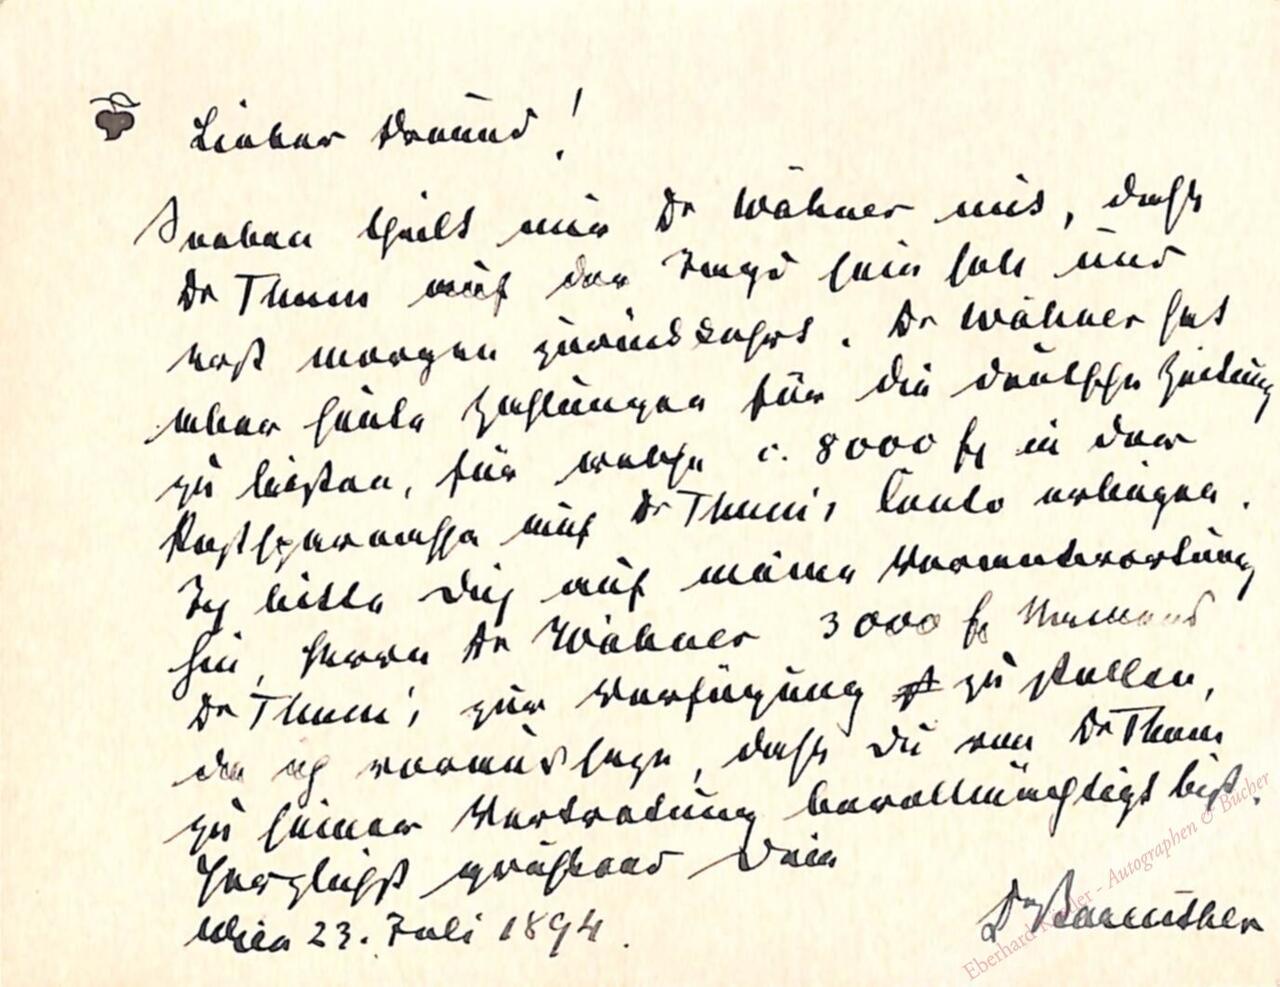 Lieber Freund!
Soeben theilt mir Dr Wähner mit, dass
Dr Thum auf der Jagd sein soll und
erst morgen zurückkehrt. Dr Wähner hat
aber heute Zahlungen für die deutsche Zeitung
zu leisten, für welche c. 8000 fl in der
Postsparcassa auf Dr Thum's Conto erliegen.
Ich bitte Dich auf meine Verantwortung
hin, Herrn Dr Wähner 3000 fl Namens
Dr Thum's zur Verfügung zu stellen,
da ich voraussetze, dass Du von Dr Thum
zu seiner Vertretung bevollmächtigt bist.
Herzlichst grüssend Dein
Wien 23. Juli 1894.
Dr Bareuther
Eberhard Köstler - Autographen & Bücher